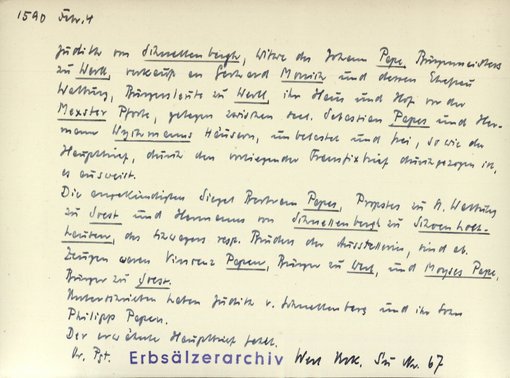 1590 Febr. 4
Judith von Schnellenbergh, Witwe des Johann Pape, Bürgermeisters
zu Werl, verkauft an Gerhard und dessen Ehefrau
Walburg, Bürgersleute zu Werl, ihr Haus und Hof vor der
Pforte, gelegen zwischen sel. Sebastian Papes und Her-
mann Häusern, unbelastet und frei, so wie der
Hauptbrief, durch den vorliegender Transfixbrief durchgezogen ist,
es ausweist.
Die angekündigten Siegel Bertram Papes, Propstes zu St. Walburg
zu Soest und Hermanns von Schnellenbergh zu Schoenholt-
hausen, des Schwagers resp. Bruders der Ausstellerin, sind ab.
Zeugen waren Vincenz Papen, Bürger zu Werl, und Moyses Pape,
Bürger zu Soest.
Unterschrieben haben Judith v. Schnellenberg und ihr Sohn
Philipp Papen.
Der erwähnte Hauptbrief fehlt.
Or. Pgt. Erbsälzerarchiv Werl Urk. Nr. 67